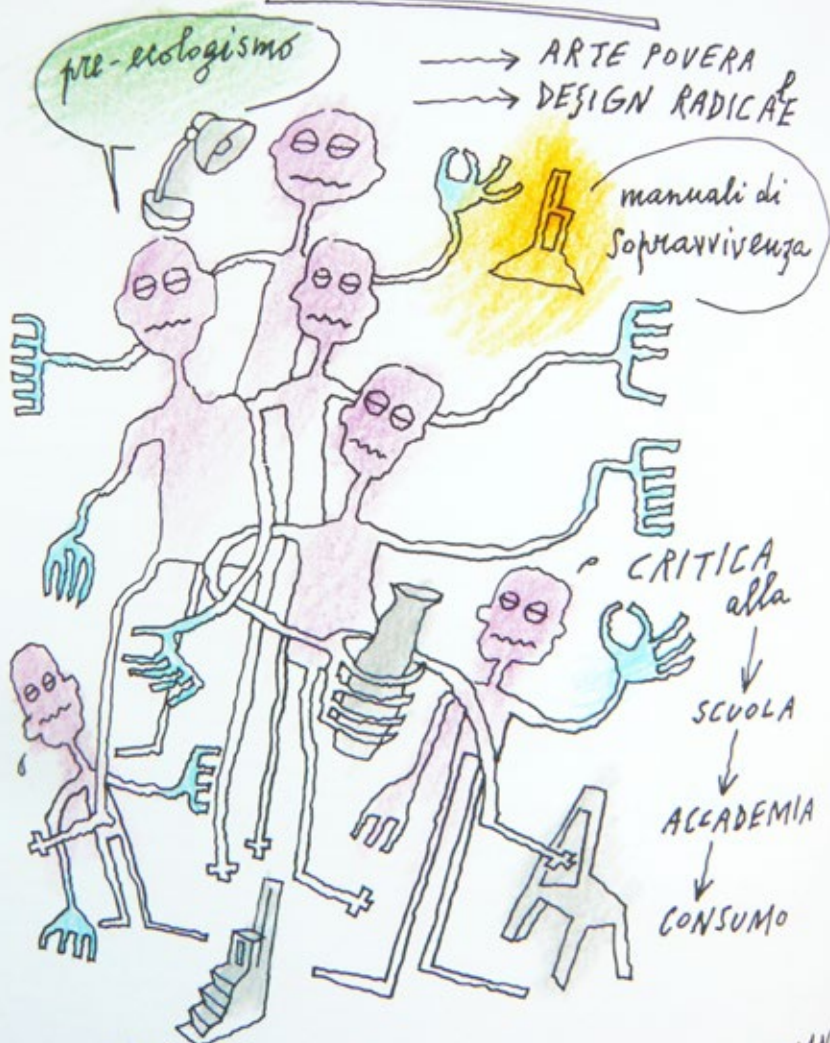 pre-ecologismo
ARTE POVERA
DESIGN RADICALE
manuali di
sopravvivenza
CRITICA
alla
SCUOLA
ACCADEMIA
CONSUMO